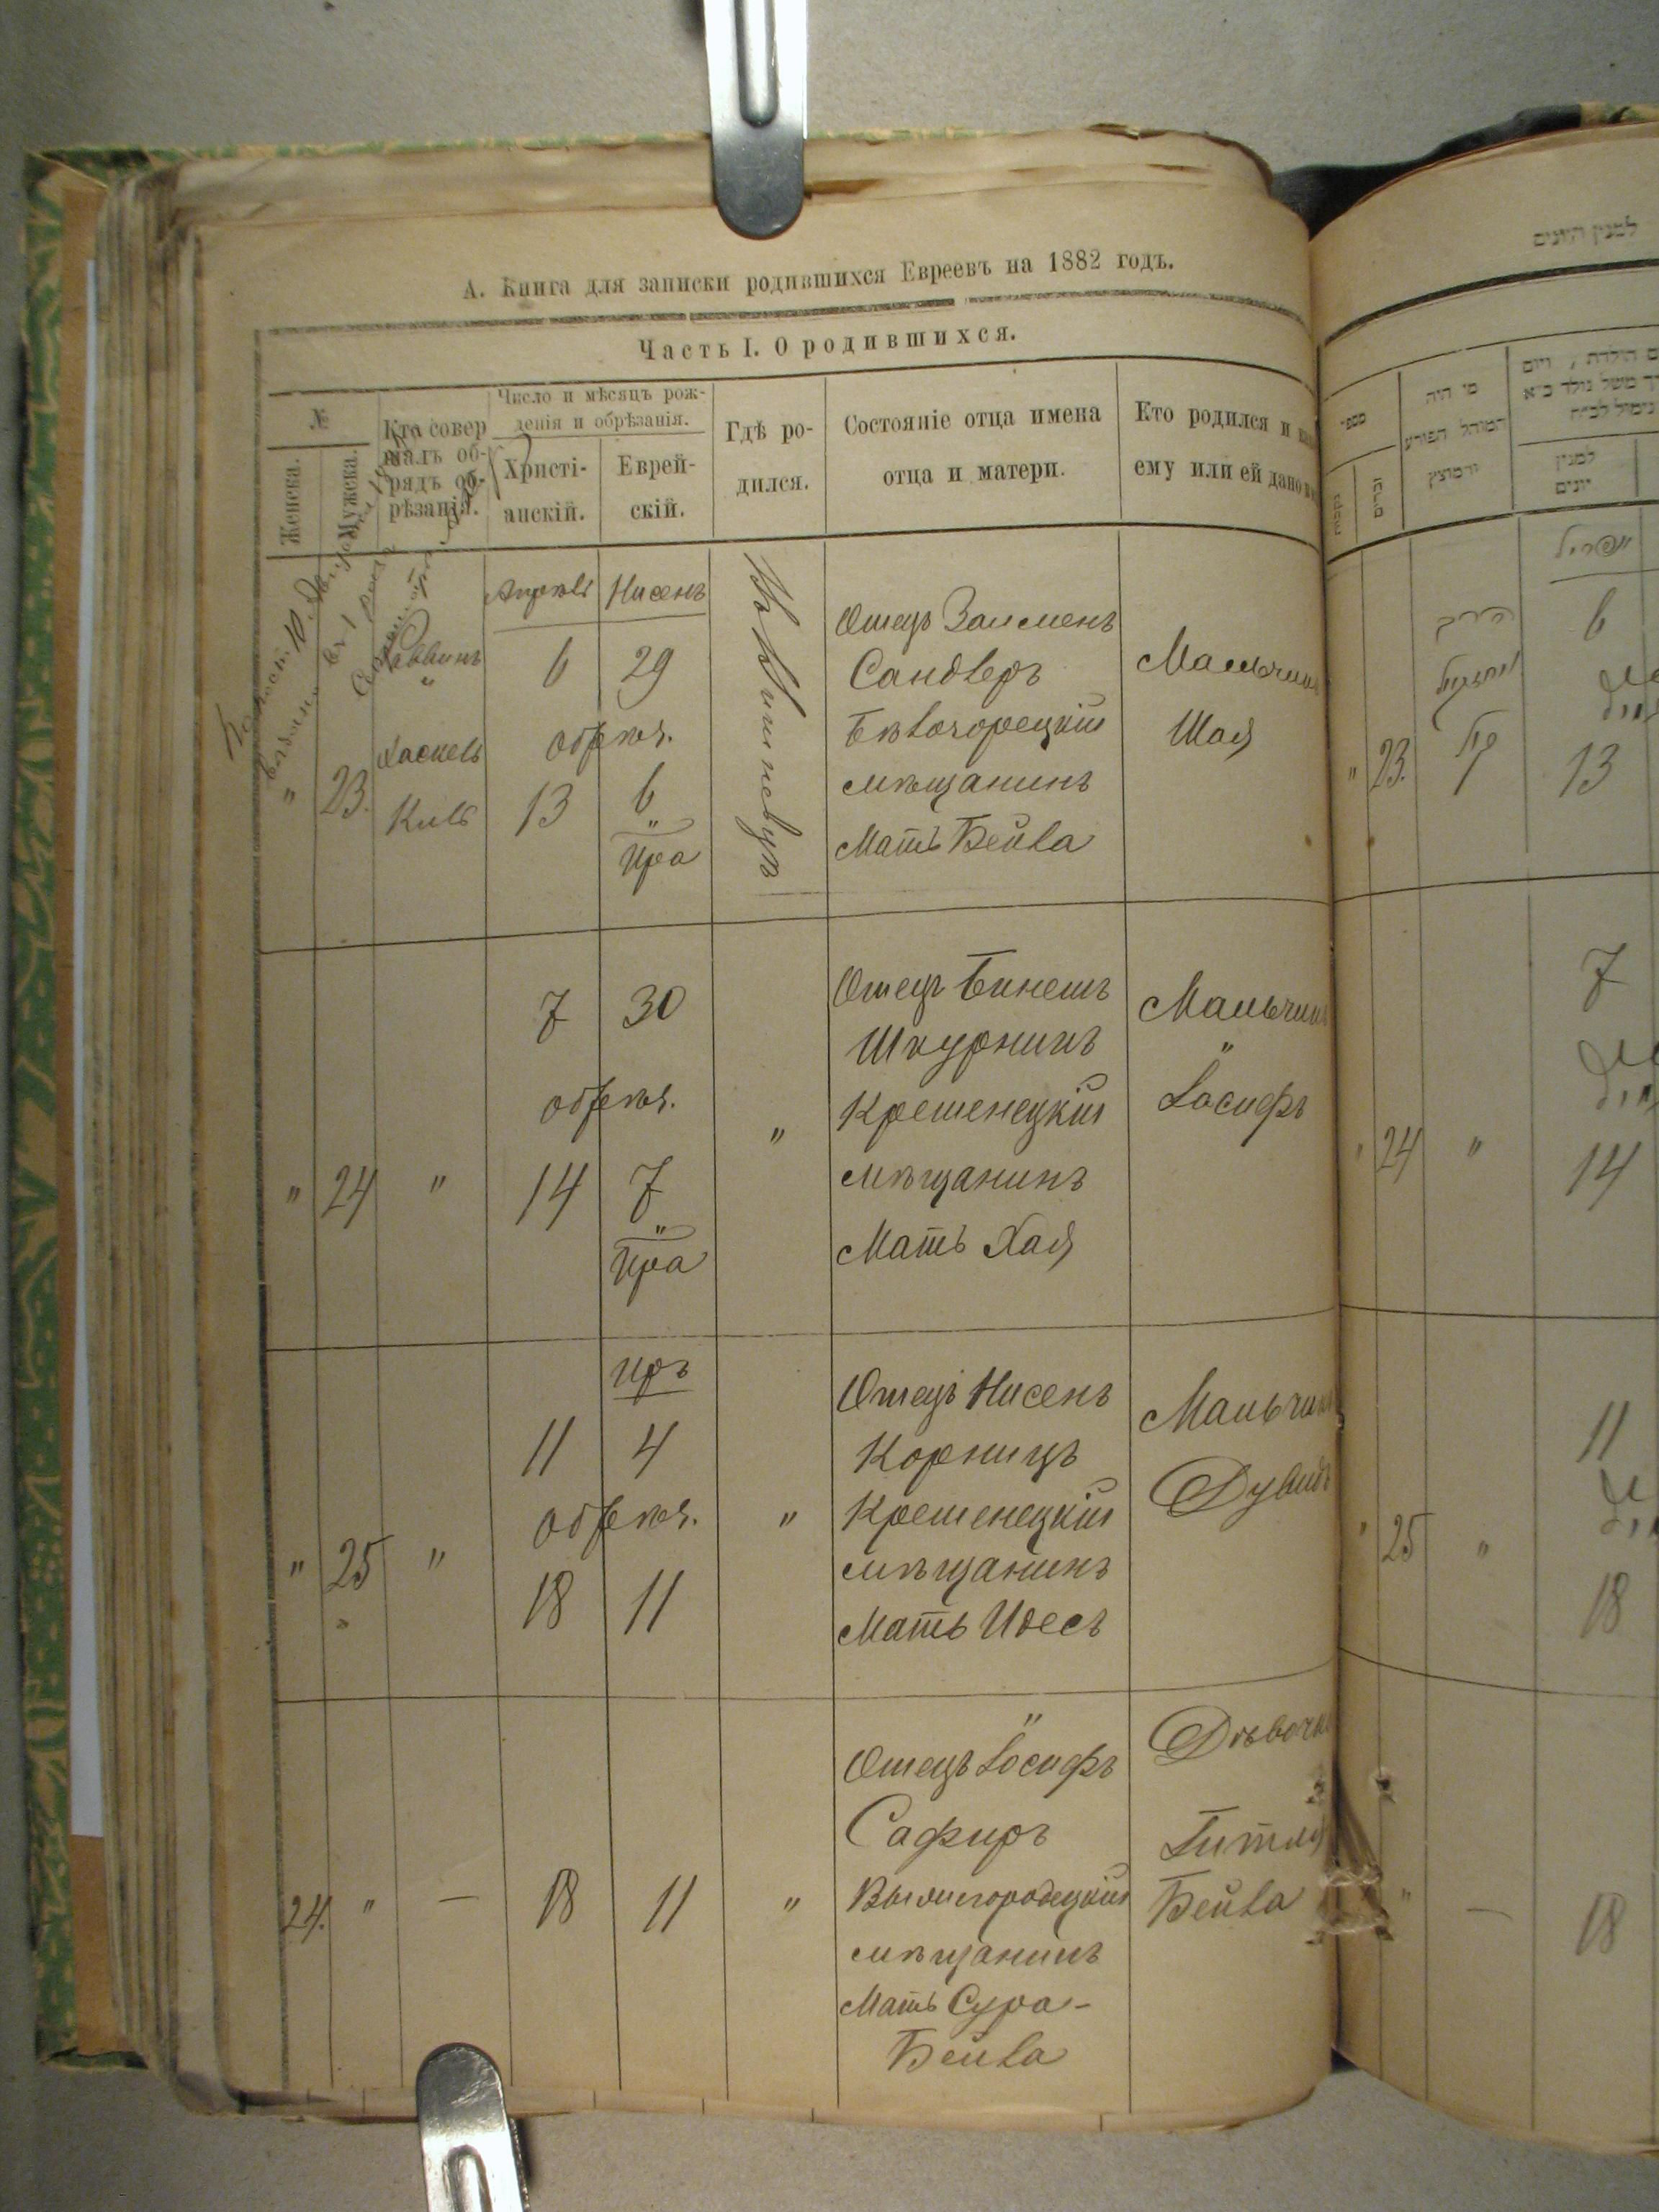 А. Книга для записки родившихся Евреевъ на 1882 годъ.
Часть I. О родившихся.
№
Женска.
Мужска.
Кто совер
шалъ об-
рядъ об-
рѣзанія.
Число и мѣсяцъ рож-
денія и обрѣзанія.
Христі-
анскій.
Еврей-
скій.
Гдѣ ро-
дился.
Состояніе отца имена
отца и матери.
Кто родился и
ему или ей дано
"
23.
Раввинъ
"
Хаскель
Киль
Апрѣль
6
обрѣз.
13
Нисенъ
29
6
"
Ира
Отецъ Залменъ
Сандлеръ
Бѣлогорецкій
мѣщанинъ
Мать Бейла
Мальчикъ
Шая
"
24
"
7
обрѣз.
14
30
7
"
Ира
"
Отецъ Бинешъ
Шкурникъ
Кременецкій
мѣщанинъ
Мать Хая
Мальчикъ
"
Іосифъ
"
25
"
11
обрѣз.
18
Иръ
4
11
"
Отецъ Нисенъ
Корницъ
Кременецкій
мѣщанинъ
Мать Идесъ
Мальчикъ
Дувидъ
24.
"
—
18
11
"
Отецъ Іосифъ
Сафиръ
Вышегородецкій
мѣщанинъ
Мать Сура-
Бейла
Дѣвочка
Гитля
Бейла
למנין היונים
מספר
מי היה
המוהל הפורע
והמוצץ
יום הולדת , ויום
למנין
יונים
נקבות
זכרים
אפריל
"
23.
הרב
6
13
"
24
"
7
14
"
25
"
11
18
"
—
18